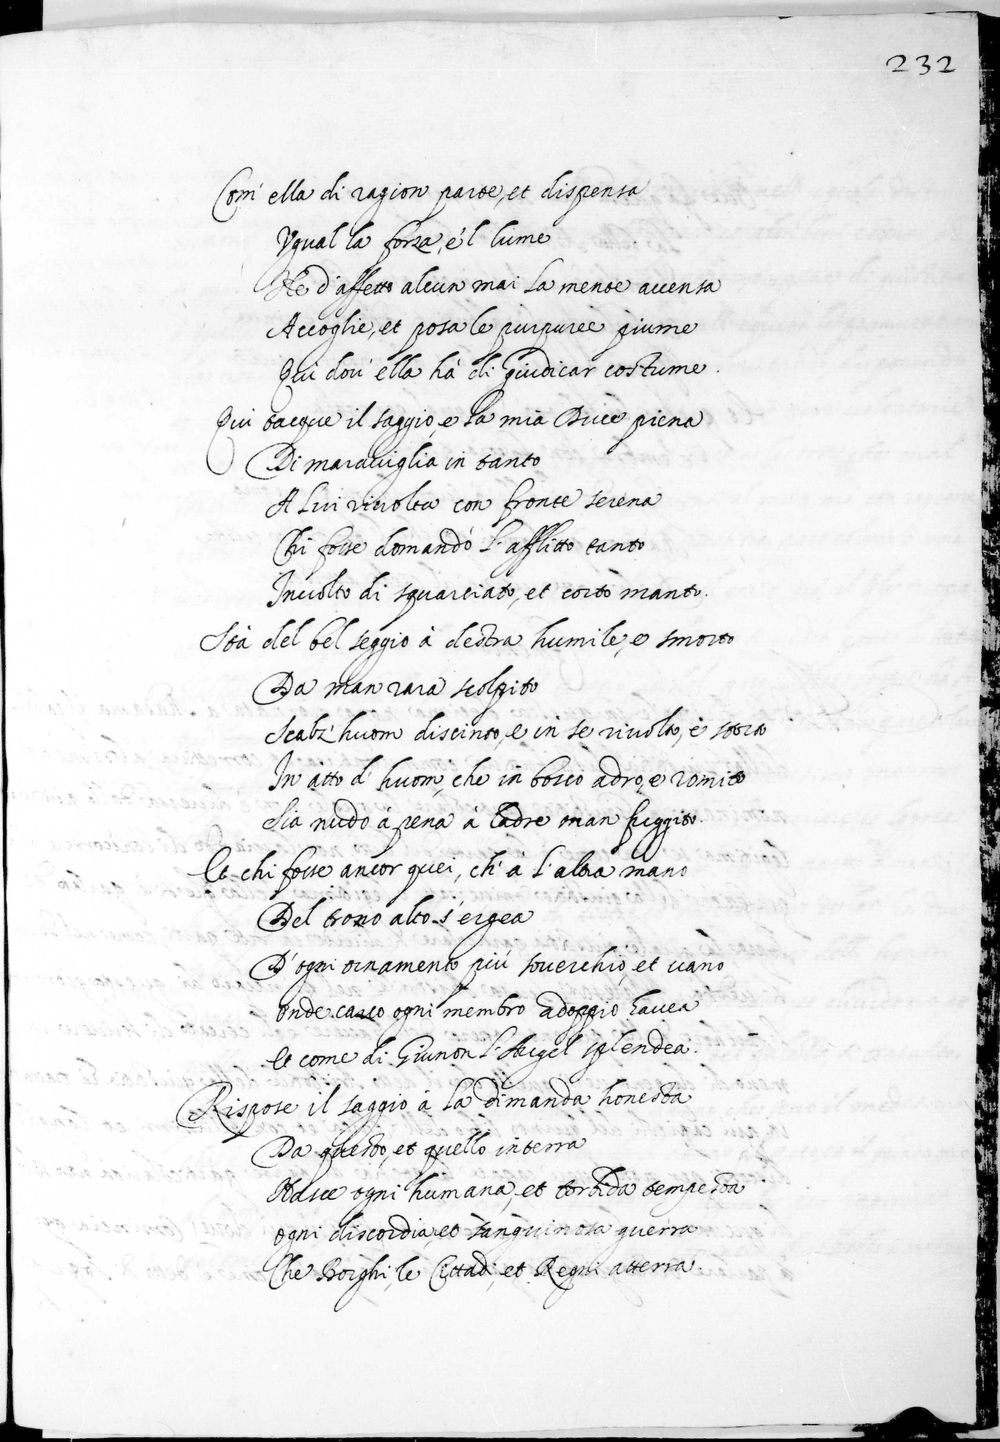 232
Com' ella di ragion parte, et dispensa
Ugual la forza, e 'l lume
Ne d' affetto alcun mai la mente accensa
Accoglie, et posa le purpuree piume
Qui dov' ella hà di giudicar costume.
Qui tacque il saggio, e la mia Duce piena
Di maraviglia in tanto
A lui rivolta con fronte serena
Chi fosse domandò l' afflitto tanto
Involto di squarciato, et corto manto.
Stà del bel seggio à destra humile, e smorto
Da man rara scolpito
Scalz' huom discinto, e in se rivolto, e storto
In atto d' huom, che in bosco adro, e romito
Sia nudo à pena à ladre man fuggito.
Et chi fosse ancor quei, ch' à l' altra mano
Del trono alto s' ergea
D' ogni ornamento più soverchio, et vano
onde carco ogni membro adoppio havea
Et come di Giunon l' Augel splendea.
Rispose il saggio à la dimanda honesta
Da questo, et quello in terra
Nasce ogni humana, et torbida tempesta
ogni discordia, et sanguinosa guerra
Che Borghi, le Cittadi, et Regni atterra.